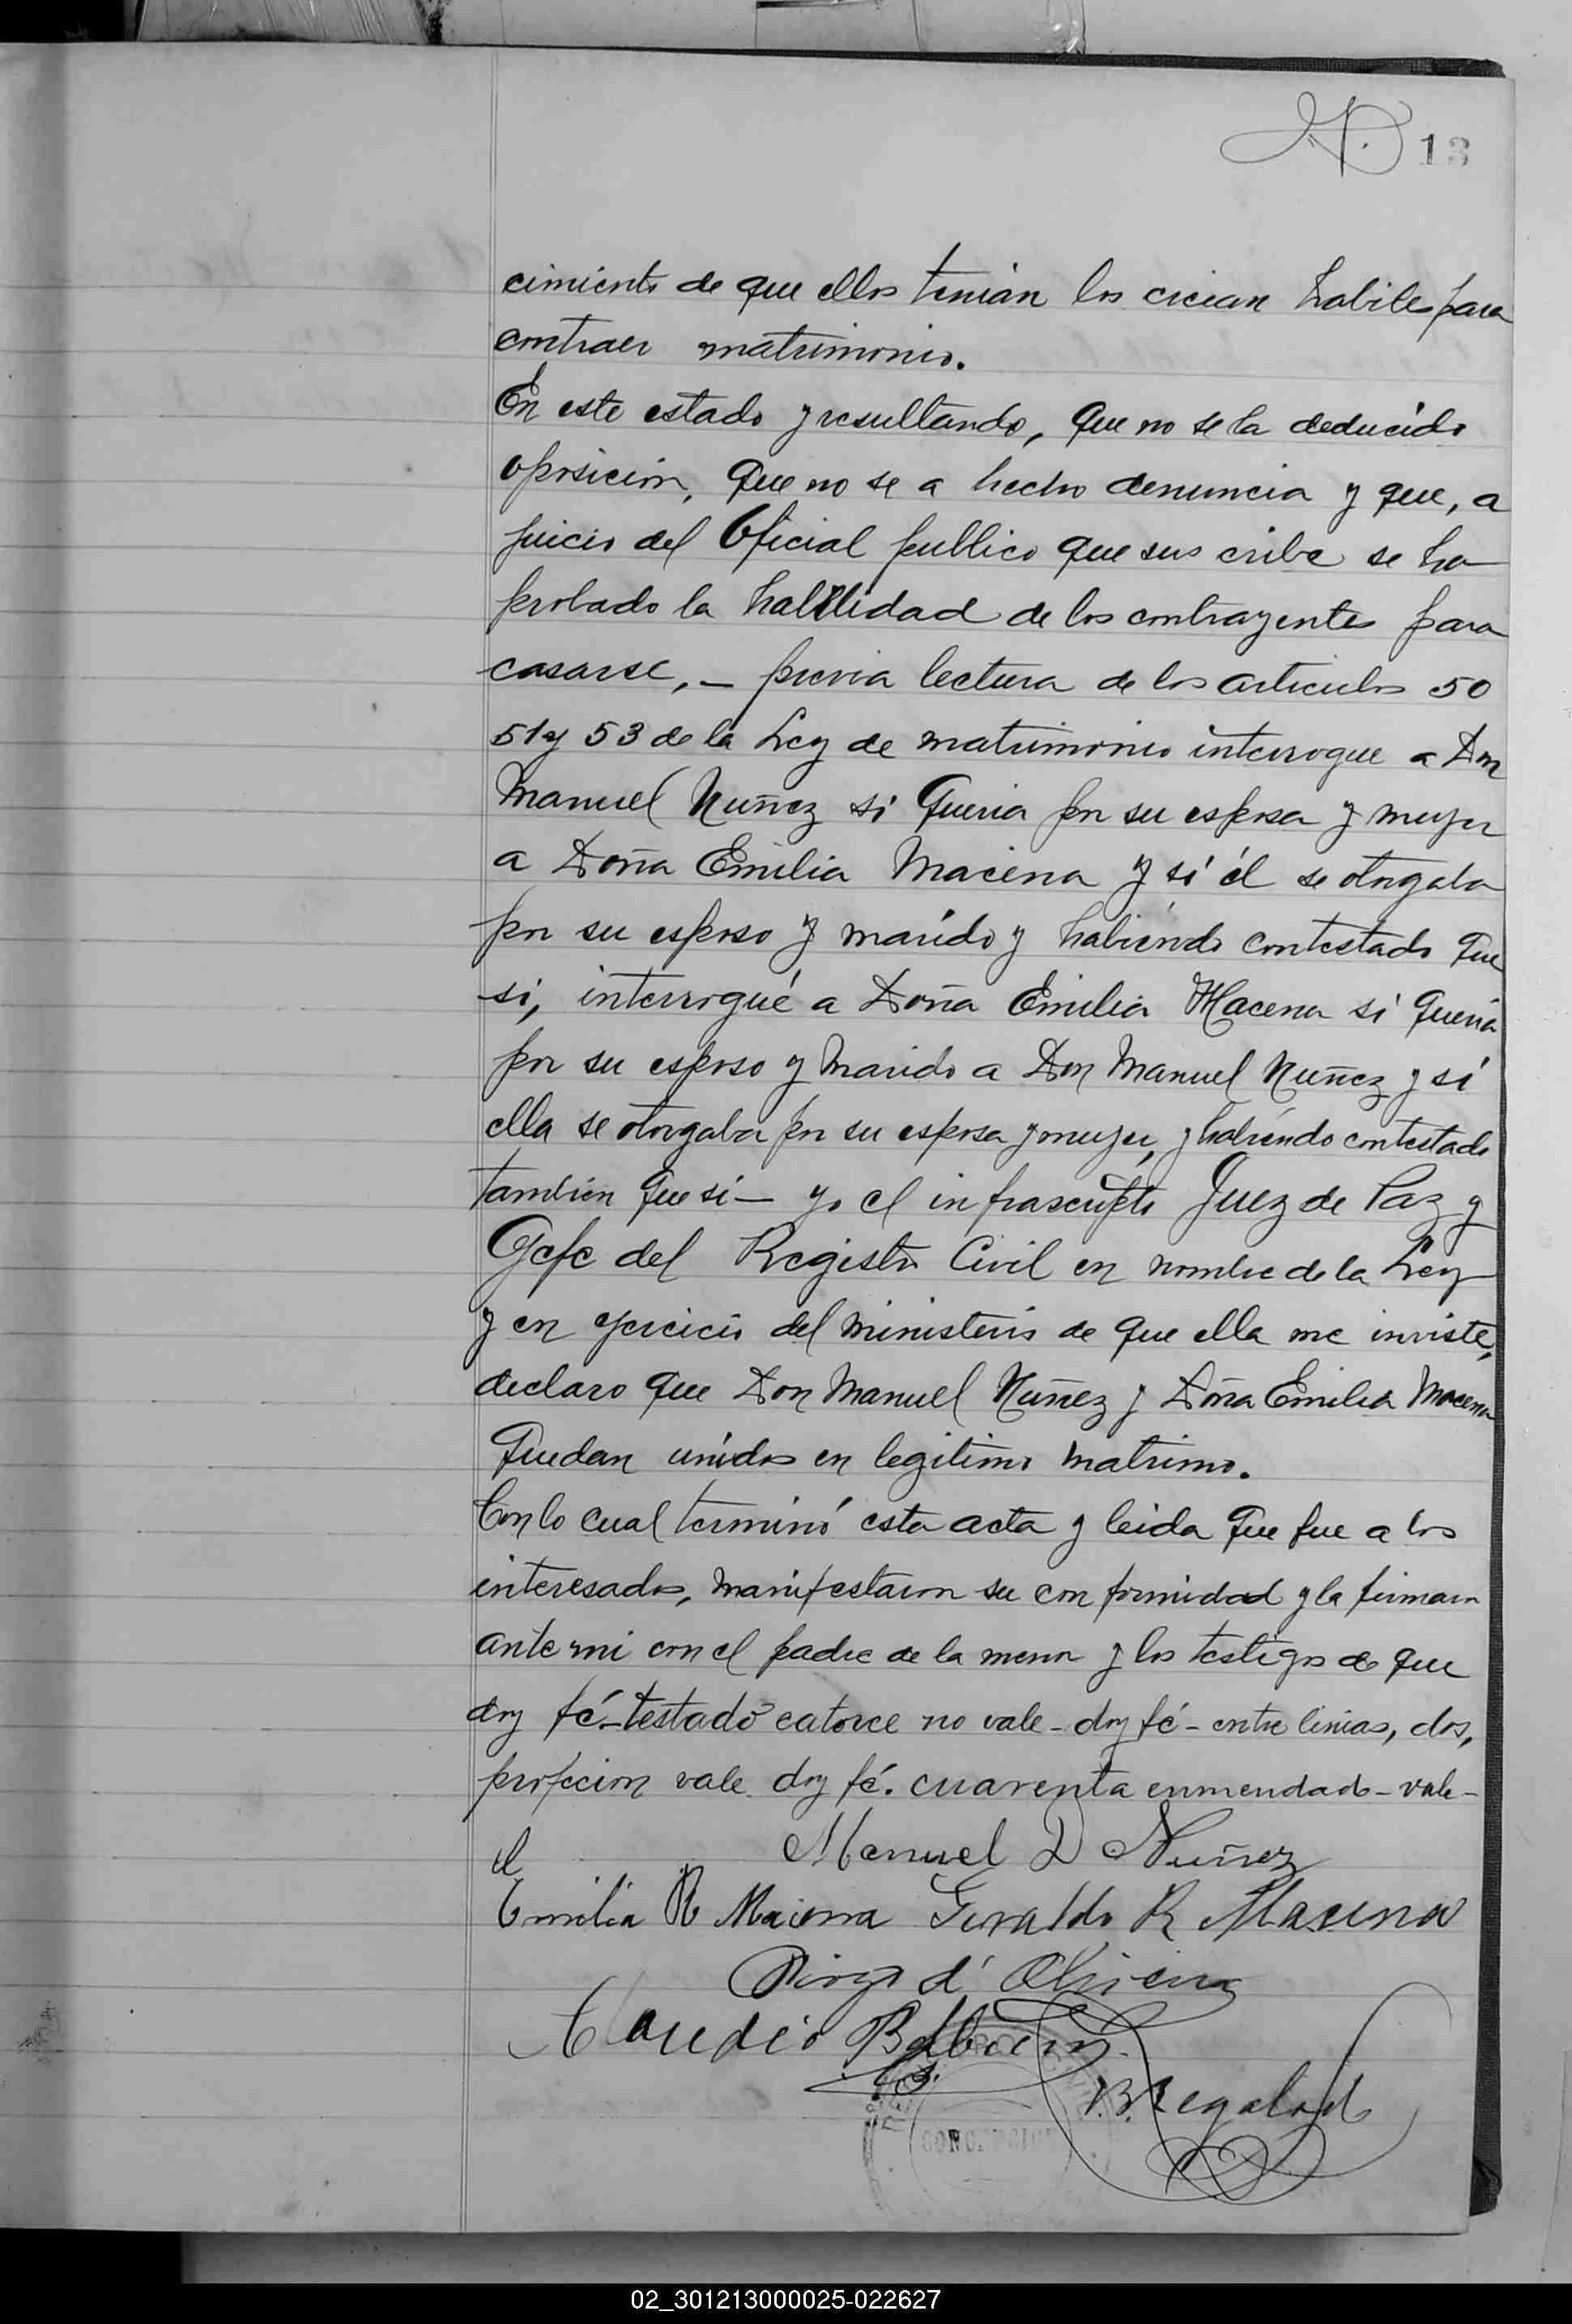 13
cimiento de que ellos tenian los creian habiles para
contraer matrimonio.
En este estado y resultando, que no se ha deducido
oposición, que no se a hecho denuncia y que, a
juicio del Oficial publico que sus cribe se ha
probado la habilidad de los contrayentes para
casarse,_ previa lectura de los articulos 50
51 y 53 de la Ley de matrimonio interrogue a Don
Manuel Nuñez si queria por su esposa y mujer
a Doña Emilia Macena y si él se otorgaba
por su esposo y marido y habiendo contestado que
si, interrogué a Doña Emilia Macena si queria
por su esposo y marido a Don Manuel Nuñez y si
ella se otorgaba por su esposa y mujer, y habiendo contestado
tambien que si_ yo el infrascripto Juez de Paz y
Gefe del Registro Civil en nombre de la Ley
y en ejercicio del ministerio de que ella me inviste,
declaro que Don Manuel Nuñez y Doña Emilia Macena
quedan unidos en legitimo matrimo.
Con lo cual terminó esta acta y leida que fue a los
interesados, manifestaron su con formidad y la firmaron
ante mi con el padre de la menor y los testigos de que
doy fé_testado catorce no vale_doy fé_entre linias, dos,
profecion vale doy fé. cuarenta enmendado_vale_
Manuel D Nuñez
Emilia R Macena Geraldo R Macena
d' Oliveira
Claudio Balbuena
B. Regalado
CONCEPCION
02_301213000025-022627